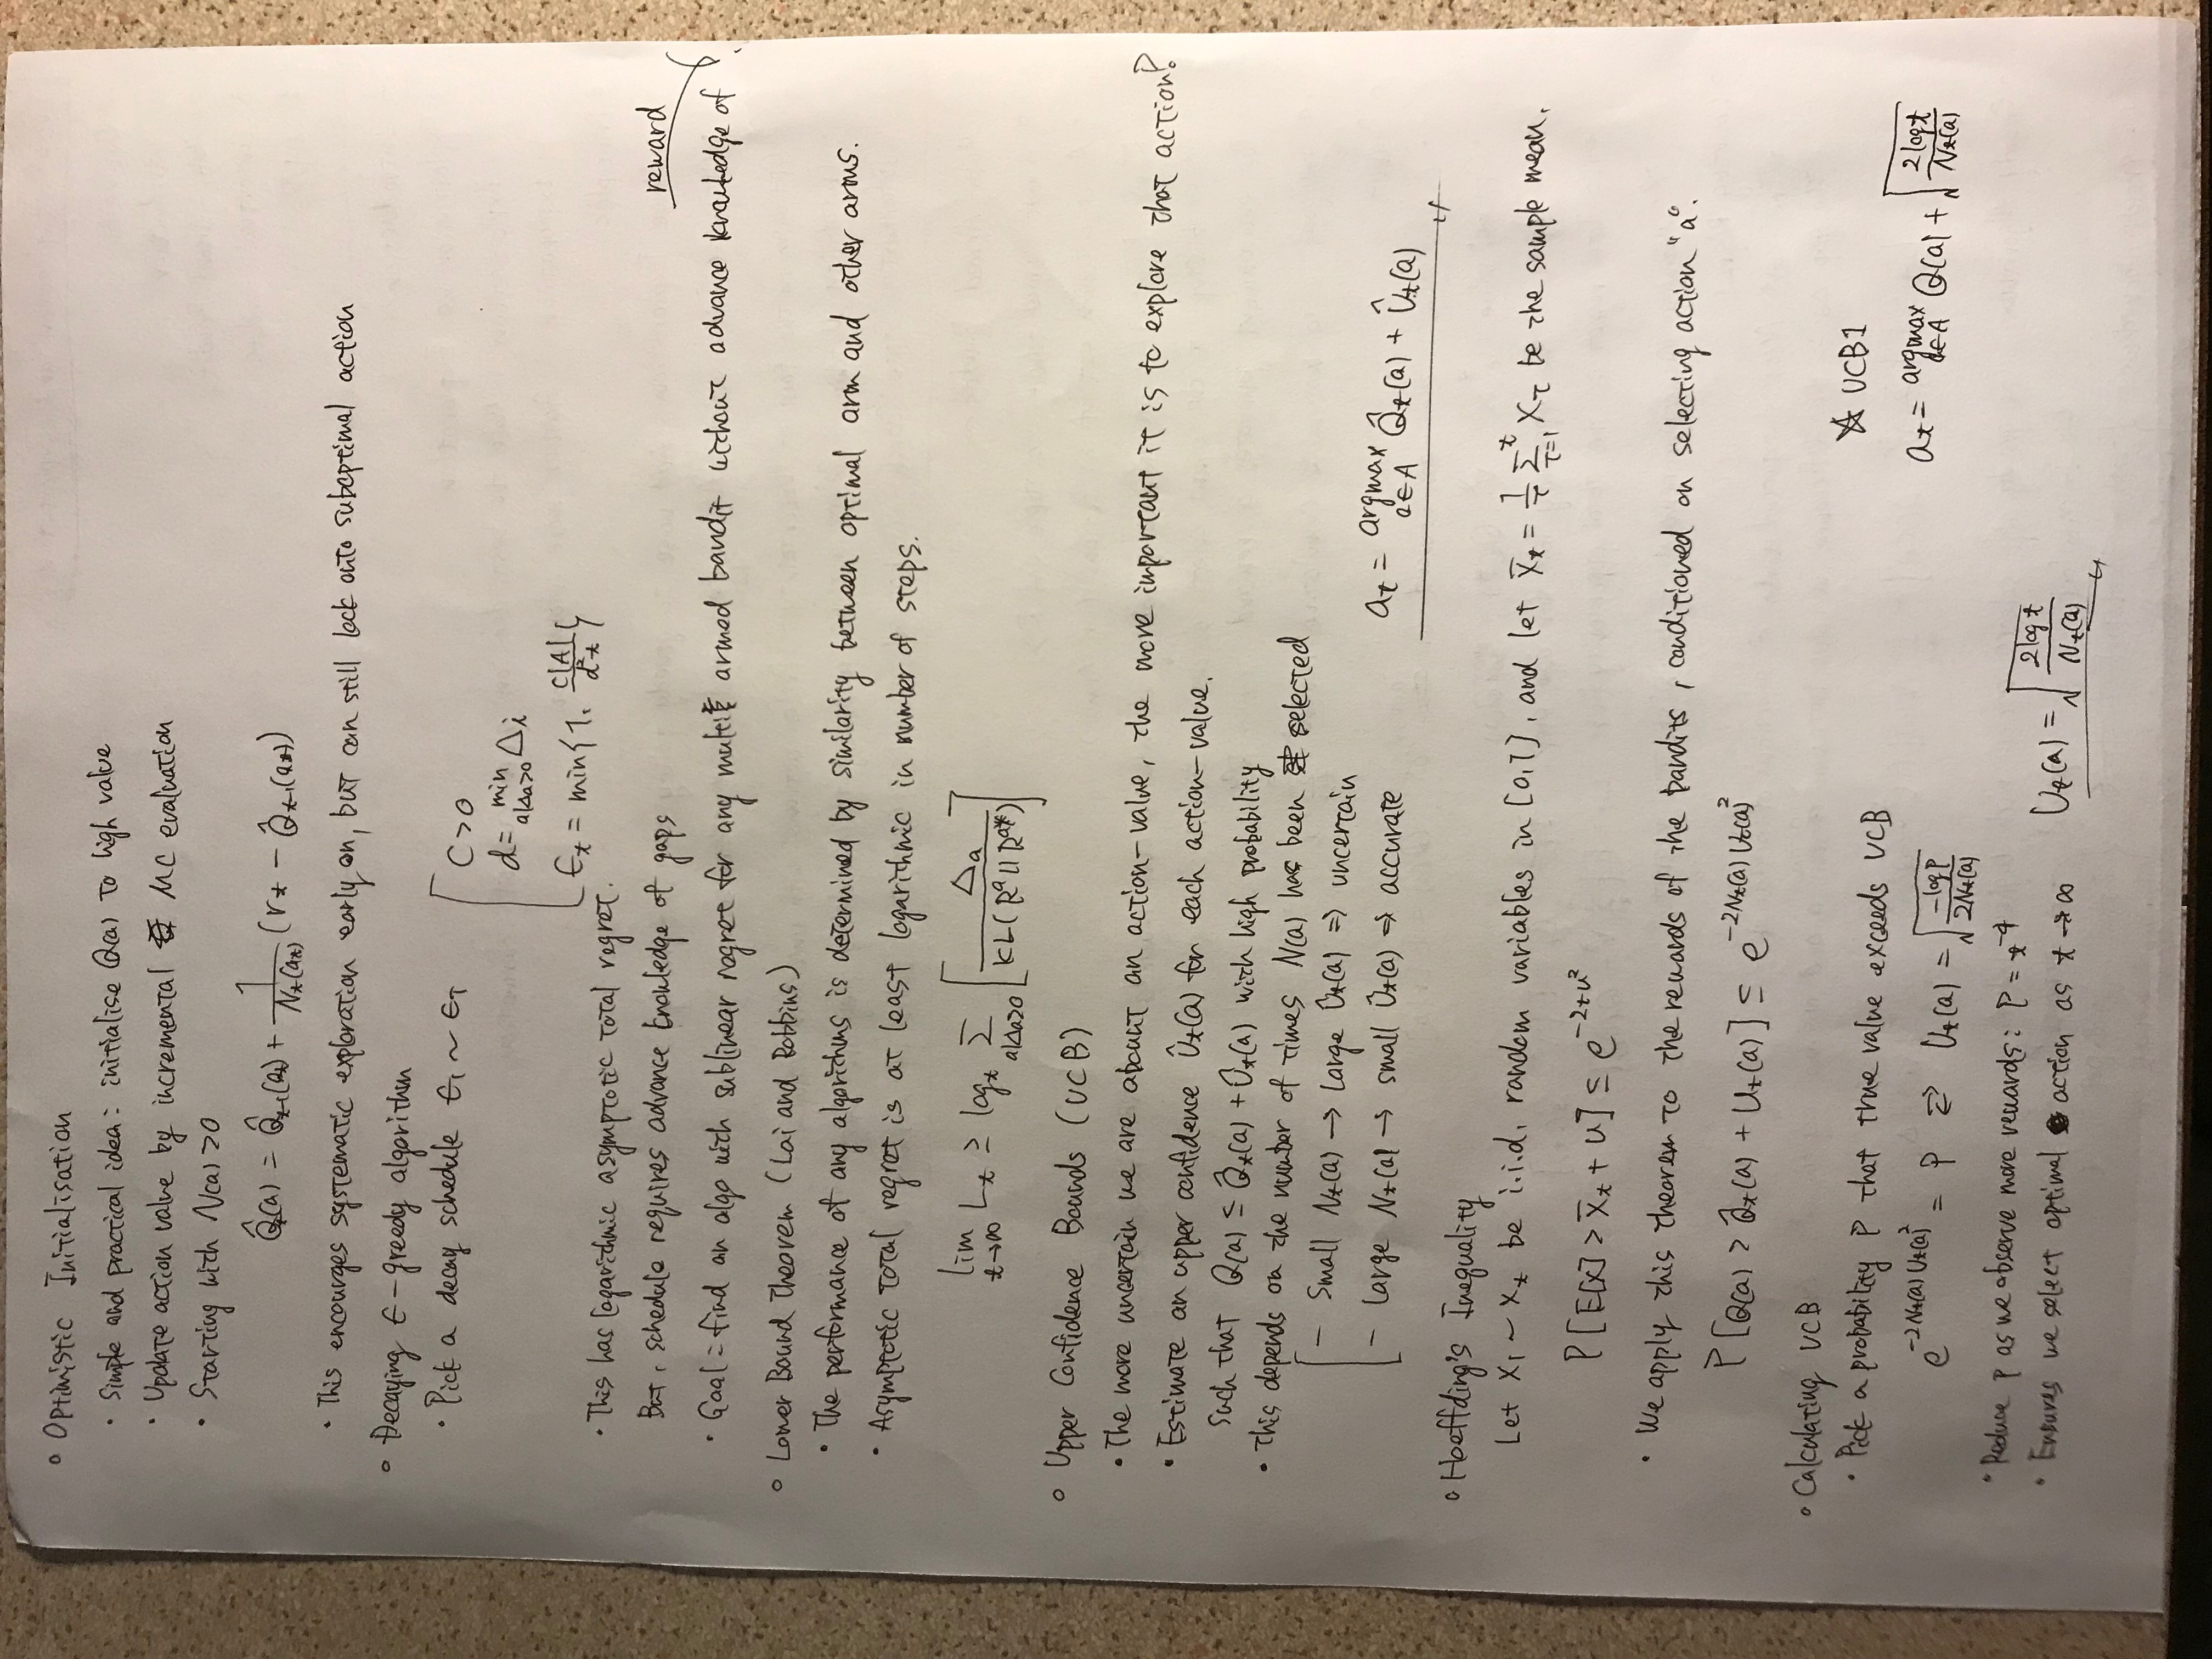 ○ Optimistic Initialisation
· Simple and practical idea: initialise Q(a) to high value
· Update action value by incremental MC evaluation
· Starting with N(a) > 0
Q̂_t(a) = Q̂_{t-1}(a_t) + 1/N_t(a_t) (r_t − Q̂_{t-1}(a_t))
· This encourges systematic exploration early on, but can still lock onto suboptimal action
○ Decaying ϵ-greedy algorithm
· Pick a decay schedule ϵ_1 ~ ϵ_T
C > 0
d = min_{a|Δa>0} Δ_i
ϵ_t = min{1, C|A|/d²t}
· This has logarithmic asymptotic total regret.
But, schedule requires advance knowledge of gaps
reward
· Goal = find an algo with sublinear regret for any multi armed bandit without advance knowledge of
○ Lower Bound Theorem (Lai and Robbins)
· The performance of any algorithms is determined by similarity between optimal arm and other arms.
· Asymptotic total regret is at least logarithmic in number of steps.
lim_{t→∞} L_t ≥ log_t Σ_{a|Δa>0} [Δ_a / KL(R^a || R^{a*})]
○ Upper Confidence Bounds (UCB)
· The more uncertain we are abount an action-value, the more important it is to explore that action?
· Estimate an upper confidence Û_t(a) for each action-value.
such that Q(a) ≤ Q̂_t(a) + Û_t(a) with high probability
· This depends on the number of times N(a) has been selected
- Small N_t(a) → Large Û_t(a) ⇒ uncertain
- Large N_t(a) → small Û_t(a) ⇒ accurate
a_t = argmax_{a∈A} Q̂_t(a) + Û_t(a)
○ Hoeffding's Inequality
Let X_1 ~ X_t be i.i.d. random variables in [0,1], and let X̄_t = 1/τ Σ_{τ=1}^t X_τ be the sample mean.
P[E[X] > X̄_t + u] ≤ e^{-2tu²}
· We apply this theorem to the rewards of the bandits, conditioned on selecting action "a".
P[Q(a) > Q̂_t(a) + U_t(a)] ≤ e^{-2N_t(a)U_t(a)²}
○ Calculating UCB
· Pick a probability P that true value exceeds UCB
e^{-2N_t(a)U_t(a)²} = P ⇄ U_t(a) = √(-log p / 2N_t(a))
· Reduce p as we observe more rewards: P = t^{-4}
· Ensures we select optimal action as t → ∞
U_t(a) = √(2log t / N_t(a))
☆ UCB1
a_t = argmax_{a∈A} Q(a) + √(2log t / N_t(a))